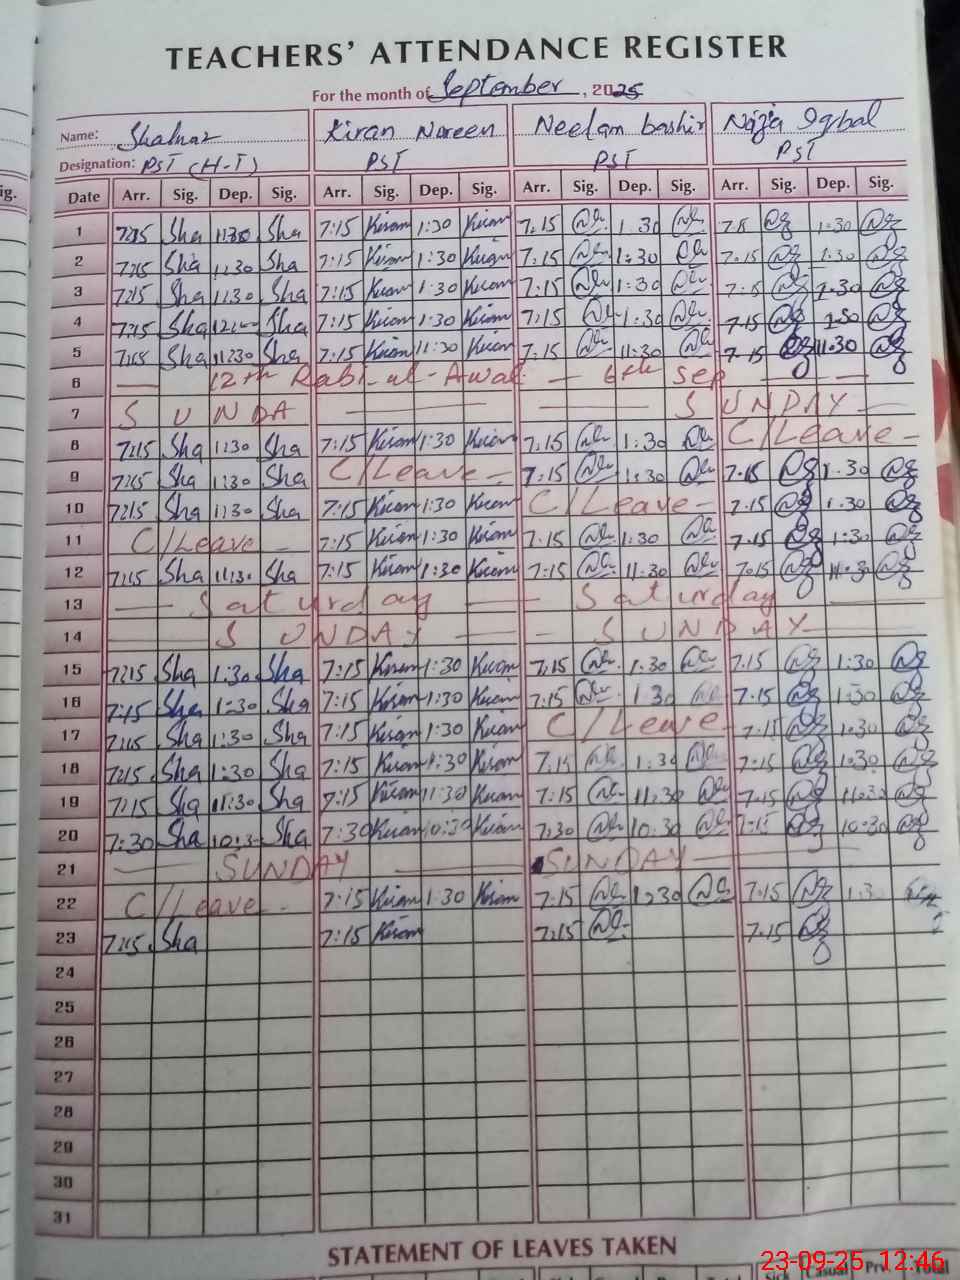 TEACHERS' ATTENDANCE REGISTER
For the month of September, 2025
Name: Kiran Nareen Neelam bashir Iqbal
Designation: PST (H-T) PST PST PST
Date Arr. Sig. Dep. Sig. Arr. Sig. Dep. Sig. Arr. Sig. Dep. Sig. Arr. Sig. Dep. Sig.
1 7:15 Sha 1:30 Sha 7:15 Kiran 1:30 Kiran 7:15 1:30 1:30
2 7:15 Sha 1:30 Sha 7:15 Kiran 1:30 Kiran 7:15 1:30 7:15 1:30
3 7:15 Sha 1:30 Sha 7:15 Kiran 1:30 Kiran 7:15 1:30 1:30
4 7:15 Sha Sha 7:15 Kiran 1:30 Kiran 7:15 1:30 7:15 1:30
5 7:15 Sha 11:30 Sha 7:15 Kiran 11:30 Kiran 7:15 11:30 7:15 11:30
6 — 12th Rabi-ul-Awal — 6th Sep — —
7 SUNDA — — SUNDAY —
8 7:15 Sha 1:30 Sha 7:15 Kiran 1:30 Kiran 7:15 1:30 C/Leave -
9 7:15 Sha 1:30 Sha C/Leave - 7:15 1:30 7:15 1:30
10 7:15 Sha 1:30 Sha 7:15 Kiran 1:30 Kiran C/Leave - 7:15 1:30
11 C/Leave - 7:15 Kiran 1:30 Kiran 7:15 1:30 7:15 1:30
12 7:15 Sha 11:30 Sha 7:15 Kiran 1:30 Kiran 7:15 11:30 7:15 11:30
13 — Saturday — Saturday —
14 — SUNDAY — - SUNDAY —
15 7:15 Sha 1:30 Sha 7:15 Kiran 1:30 Kiran 7:15 1:30 7:15 1:30
16 7:15 Sha 1:30 Sha 7:15 Kiran 1:30 Kiran 7:15 1:30 7:15 1:30
17 7:15 Sha 1:30 Sha 7:15 Kiran 1:30 Kiran C/Leave 7:15 1:30
18 7:15 Sha 1:30 Sha 7:15 Kiran 1:30 Kiran 7:15 1:30 7:15 1:30
19 7:15 Sha 11:30 Sha 7:15 Kiran 11:30 Kiran 7:15 11:30 7:15 11:30
20 7:30 Sha 10:3- Sha 7:30 Kiran 10:30 Kiran 7:30 10:30 7:15 10:30
21 — SUNDAY — SUNDAY —
22 C/Leave - 7:15 Kiran 1:30 Kiran 7:15 1:30 7:15 1:3
23 7:15 Sha 7:15 Kiran 7:15 7:15
24
25
26
27
28
29
30
31
STATEMENT OF LEAVES TAKEN
23-09-25 12:46
Sick Casual Prv. Total